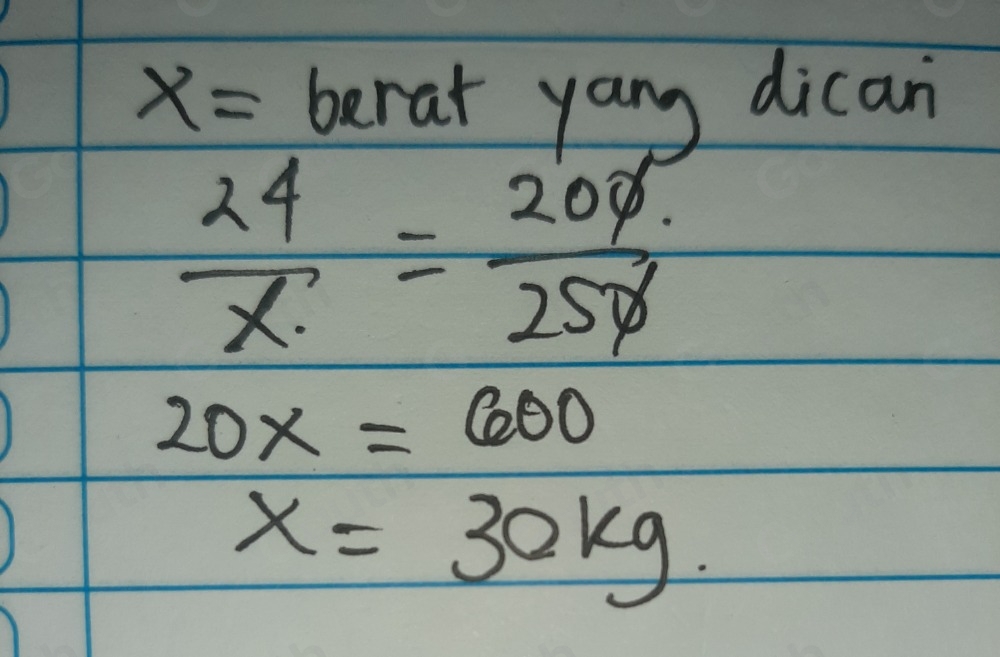 x = berat yang dicari
24/x. = 200./250
20x = 600
x = 30 kg.